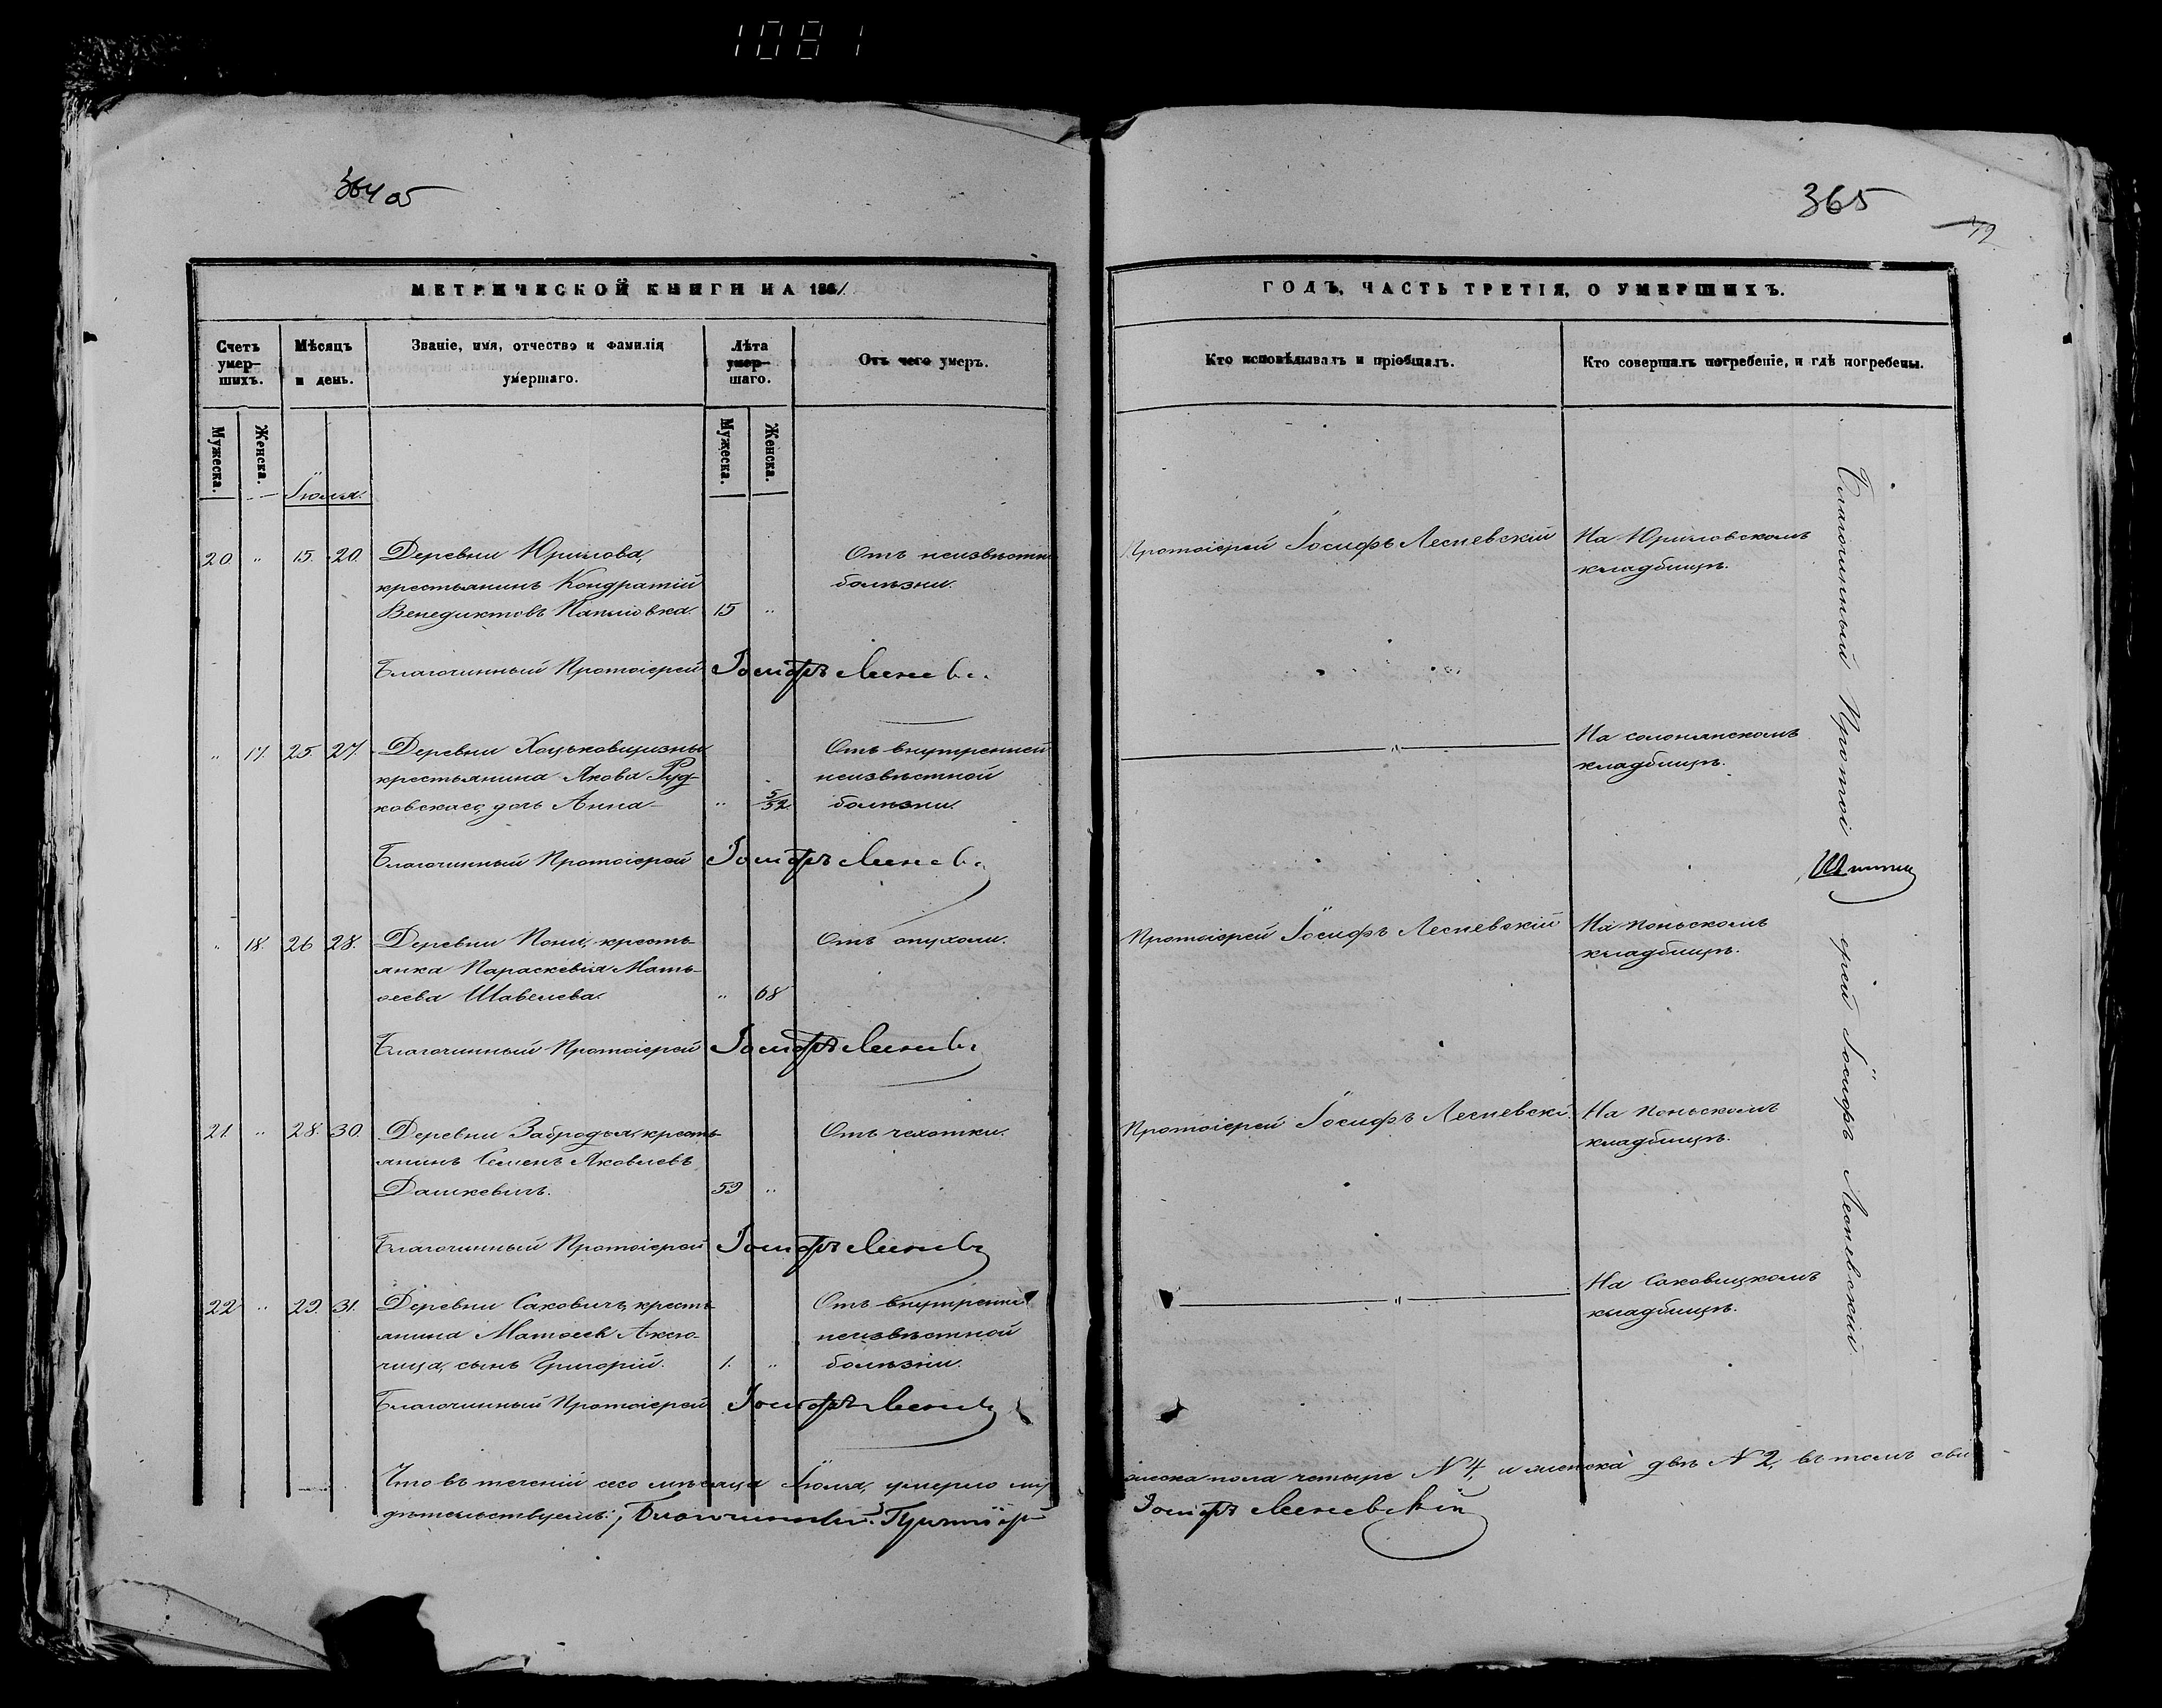 1081
364 об
365
МЕТРИЧЕСКОЙ КНИГИ НА 1861
ГОДЪ, ЧАСТЬ ТРЕТІЯ, О УМЕРШИХЪ.
Счетъ умер-шихъ.
Мѣсяцъ и день.
Званіе, имя, отчество и фамилія умершаго.
Лѣта умер-шаго.
Отъ чего умеръ.
Кто исповѣдывалъ и пріобщалъ.
Кто совершалъ погребеніе, и гдѣ погребены.
Мужеска.
Женска.
Мужеска.
Женска.
Іюля.
20 " 15. 20. Деревни Юрилова, Отъ неизвѣстн
крестьянинъ Кондратій болѣзни.
Венедиктовъ 15 "
Протоіерей Іосифъ Лесневскій На Юриловскомъ
кладбищѣ.
Благочинный Протоіерей Іосифъ Леснев
" 17. 25. 27. Деревни Отъ внутренней
крестьянина Якова Руд- неизвѣстной
ковскаго, дочь Анна " 5/52 болѣзни.
" На солонянскомъ
кладбищѣ.
Благочинный Протоіерей Іосифъ Леснев
" 18. 26 28. Деревни Пони, кресть- Отъ опухоли.
янка Параскевія Мать-
оеева Шавелева. " 68
Протоіерей Іосифъ Лесневскій На Поньскомъ
кладбищѣ.
Благочинный Протоіерей Іосифъ Леснев
21. " 28. 30. Деревни Забродья, кресть- Отъ чахотки.
янинъ Семенъ Яковлевъ
Дашкевичъ. 59 "
Протоіерей Іосифъ Лесневскі На Поньскомъ
кладбищѣ.
Благочинный Протоіерей Іосифъ Леснев
22 " 29. 31. Деревни Саковичъ, кресть- Отъ внутренне
янина Матоея Аксю-
чица, сынъ Григорій. 1. " неизвѣстной
болѣзни.
" На Саковицкомъ
кладбищѣ.
Благочинный Протоіерей Іосифъ Леснев
Что въ теченіи сего мѣсяца Іюля, умерло му жеска пола четыре N 4, и женска двѣ N 2, въ томъ сви
дѣтельствуемъ: Благочинный Протоіер Іосифъ Лесневскій
Благочинный Протоі ерей Іосифъ Лесневскій